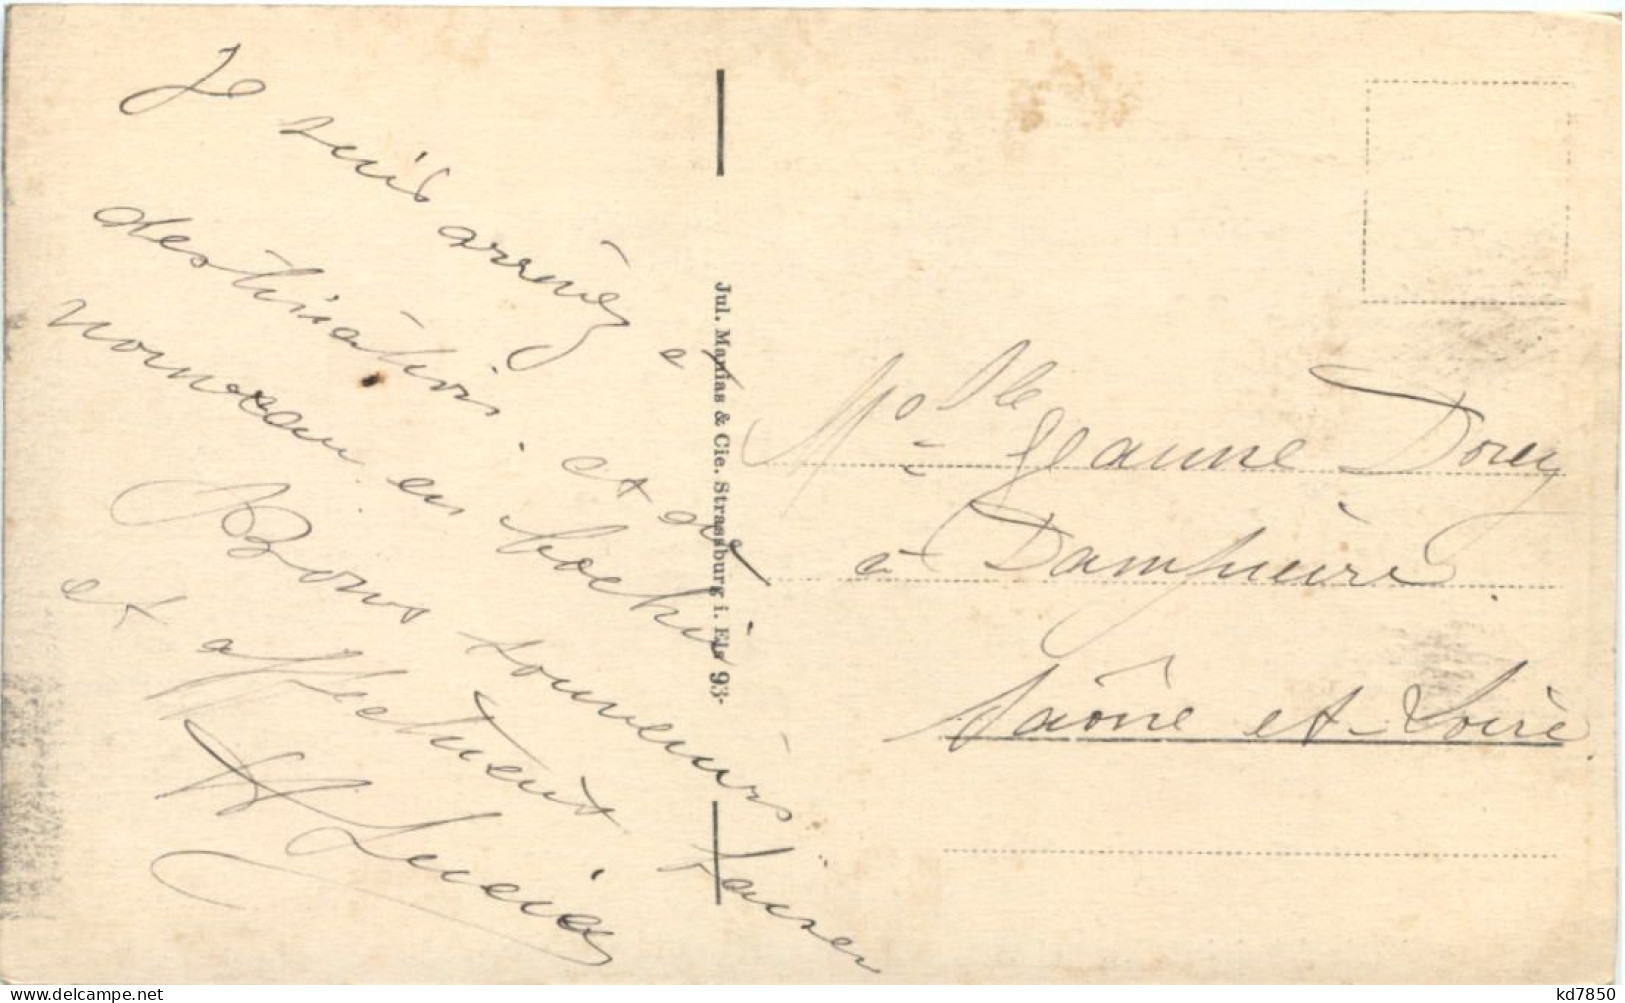 Je suis arrivé à
destination et de
nouveau en bochie
Bons souvenirs
et affectueux baiser
Lucien
Jul. Manias & Cie. Strassburg i. Els 93-
Melle Jeanne Dorey
à Dampierre
Saône et Loire
kd7850